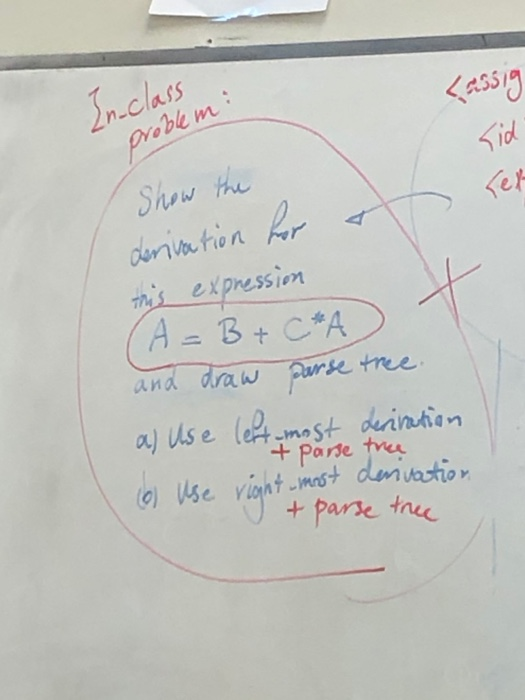 In-class
problem:
<assig
<id
<ex
Show the
derivation for
this expression
A = B + C*A
and draw parse tree.
a) Use left-most derivation
+ parse tree
(b) Use right-most derivation
+ parse tree